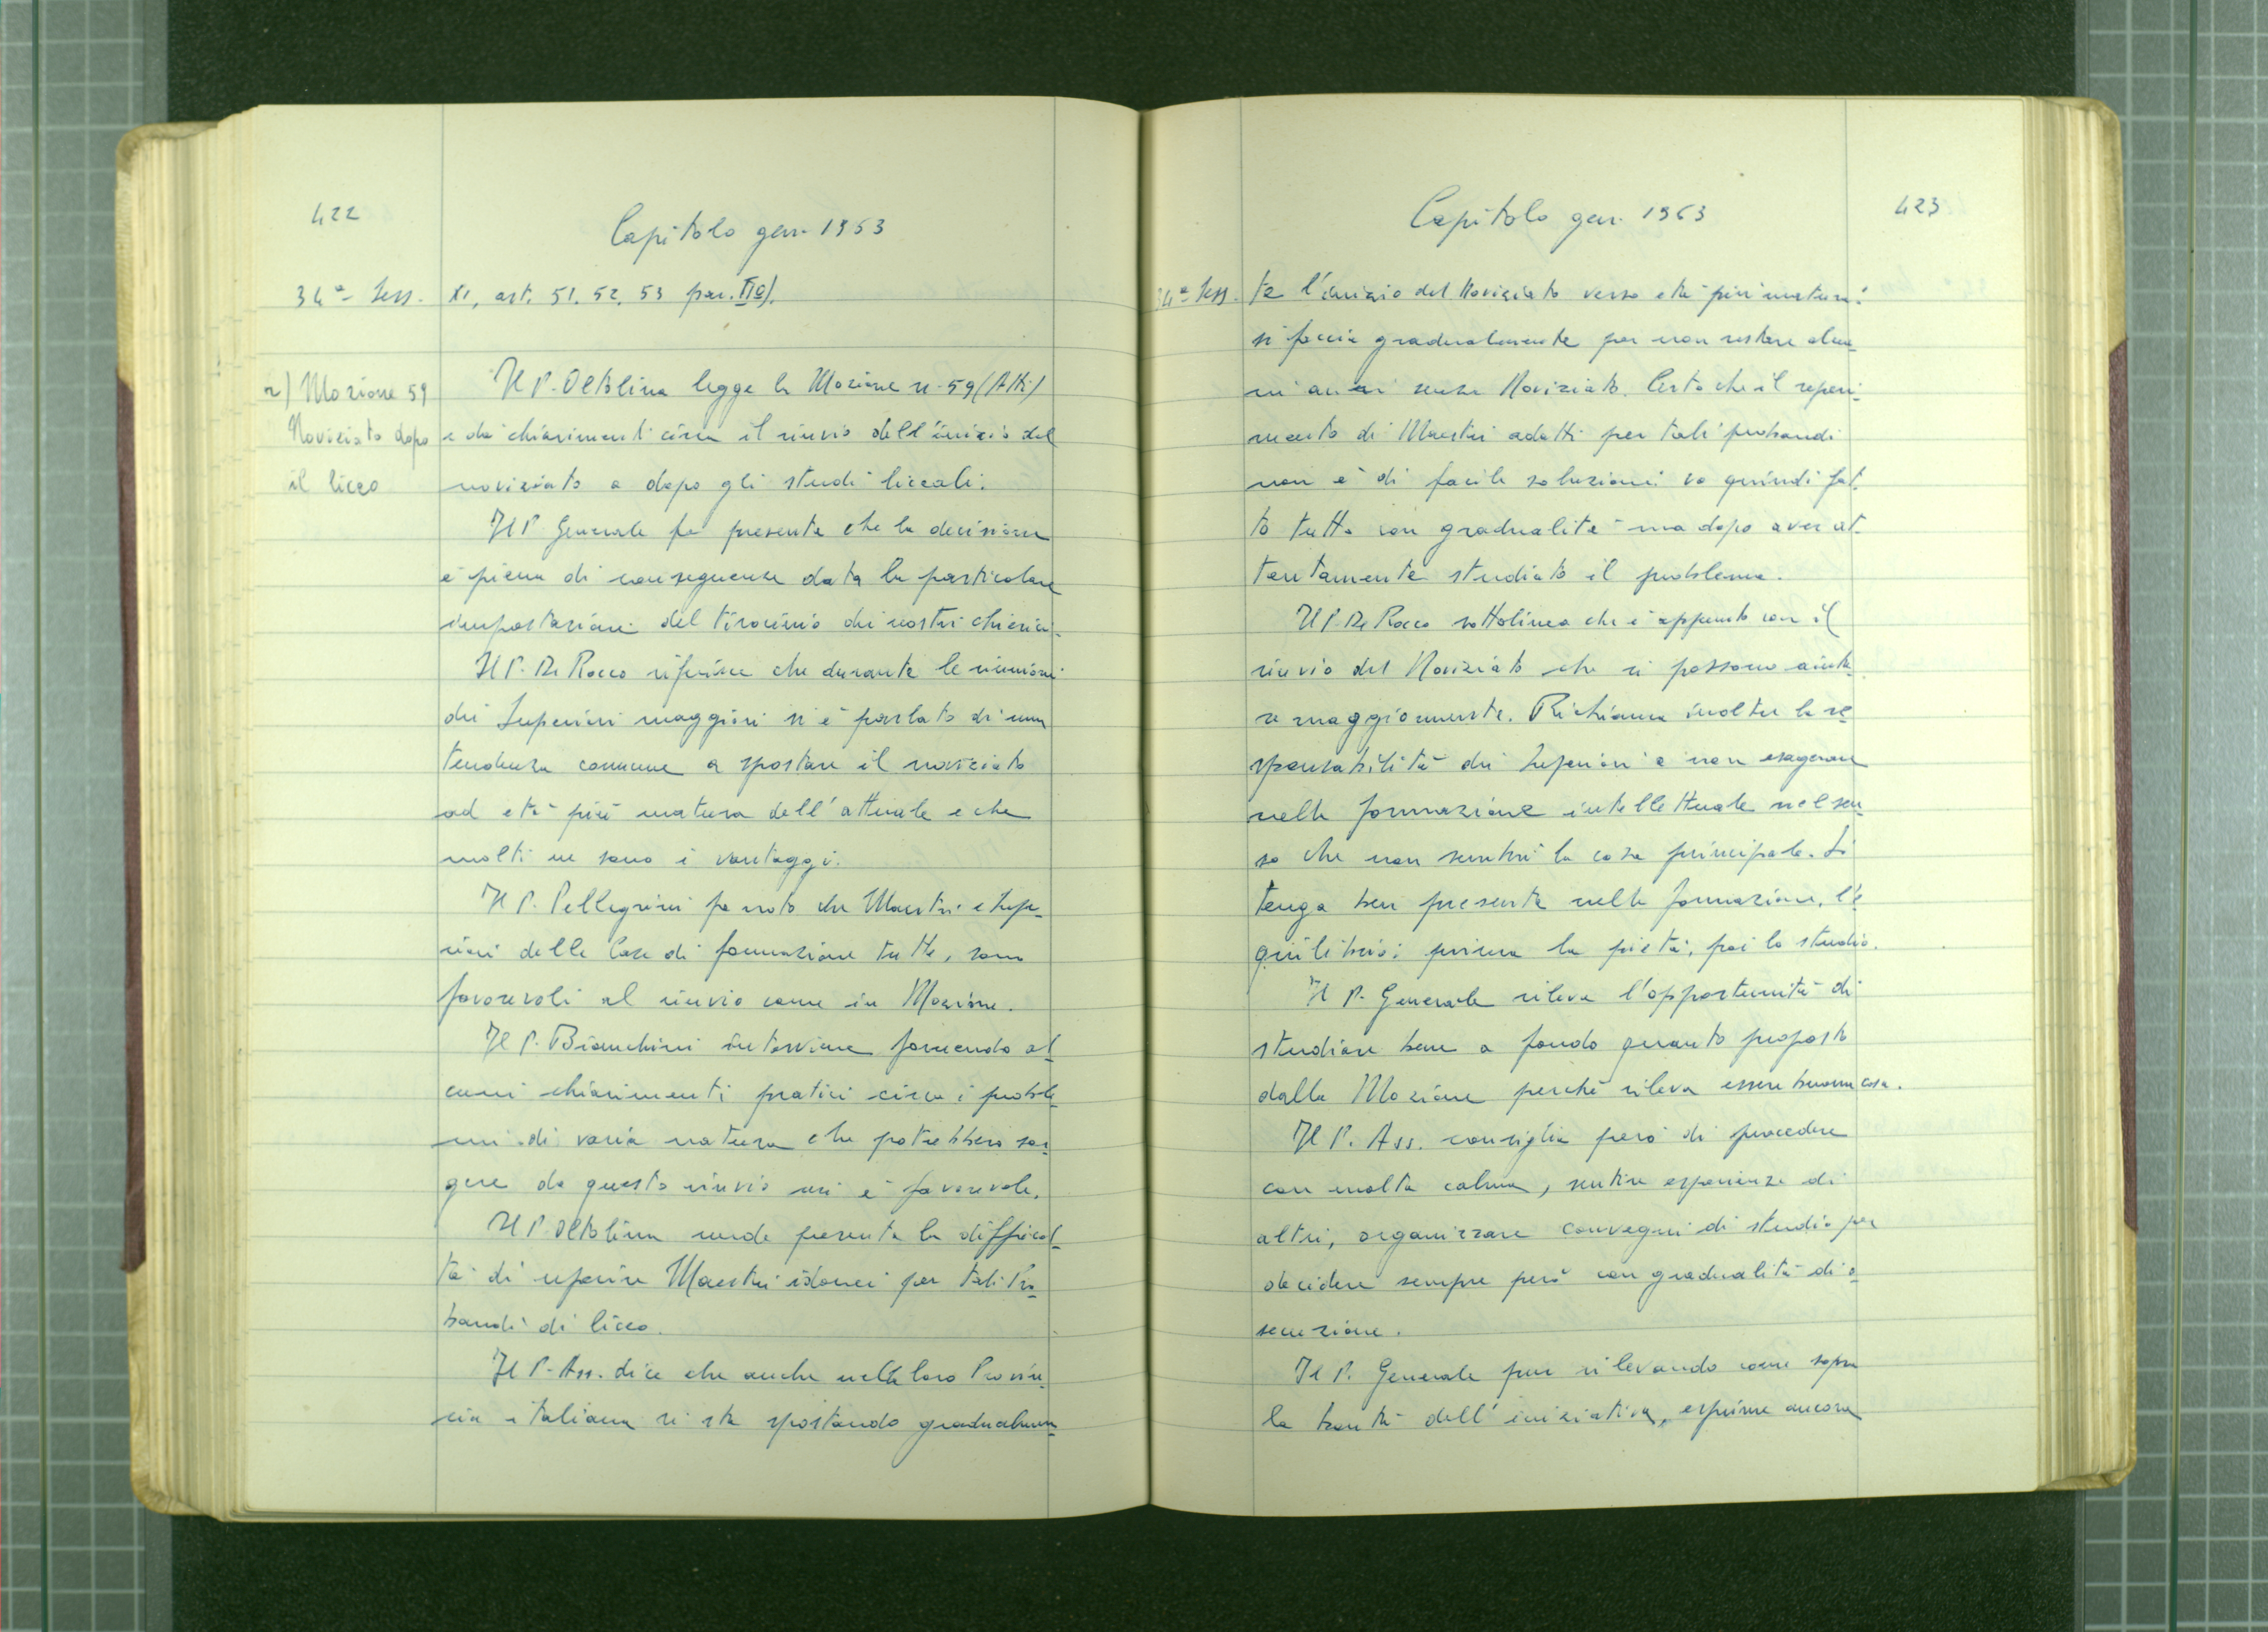 422
Capitolo gen. 1963
34ª Sess.
XI, art. 51. 52. 53 par. IIº).
r) Mozione 59
Noviziato dopo
il liceo
Il P. Oltolina legge la Mozione n. 59 (Atti)
e dà chiarimenti circa il rinvio dell'inizio del
noviziato a dopo gli studi liceali.
Il P. Generale fa presente che la decisione
è piena di conseguenze data la particolare
impostazione del tirocinio dei nostri chierici.
Il P. De Rocco riferisce che durante le riunioni
dei Superiori maggiori si è parlato di una
tendenza comune a spostare il noviziato
ad età più matura dell'attuale e che
molti ne sono i vantaggi.
Il P. Pellegrini fa noto che Maestri e Supe-
riori delle Case di formazione tutte, sono
favorevoli al rinvio come in Mozione.
Il P. Bianchini interviene fornendo al-
cuni chiarimenti pratici circa i proble-
mi di varia natura che potrebbero sor-
gere da questo rinvio cui è favorevole.
Il P. Oltolina rende presente la difficol-
tà di reperire Maestri idonei per tali Pro-
bandi di liceo.
Il P. Ass. dice che anche nella loro Provin-
cia italiana si sta spostando gradualmen-
Capitolo gen. 1963
423
34ª Sess.
te l'inizio del Noviziato verso età più matura:
si faccia gradualmente per non restare alcu-
ni anni senza Noviziato. Certo che il reperi-
mento di Maestri adatti per tali probandi
non è di facile soluzione: va quindi fat-
to tutto con gradualità ma dopo aver at-
tentamente studiato il problema.
Il P. De Rocco sottolinea che è appunto con il
rinvio del Noviziato che si possono aiuta-
re maggiormente. Richiama inoltre la re-
sponsabilità dei Superiori a non esagerare
nella formazione intellettuale nel sen-
so che non sembri la cosa principale. Si
tenga ben presente nella formazione, l'e-
quilibrio: prima la pietà, poi lo studio.
Il P. Generale rileva l'opportunità di
studiare bene a fondo quanto proposto
dalla Mozione perché rileva essere buona cosa.
Il P. Ass. consiglia però di procedere
con molta calma, sentire esperienze di
altri, organizzare convegni di studio per
decidere sempre però con gradualità di e-
secuzione.
Il P. Generale pur rilevando come sopra
la bontà dell'iniziativa, esprime ancora